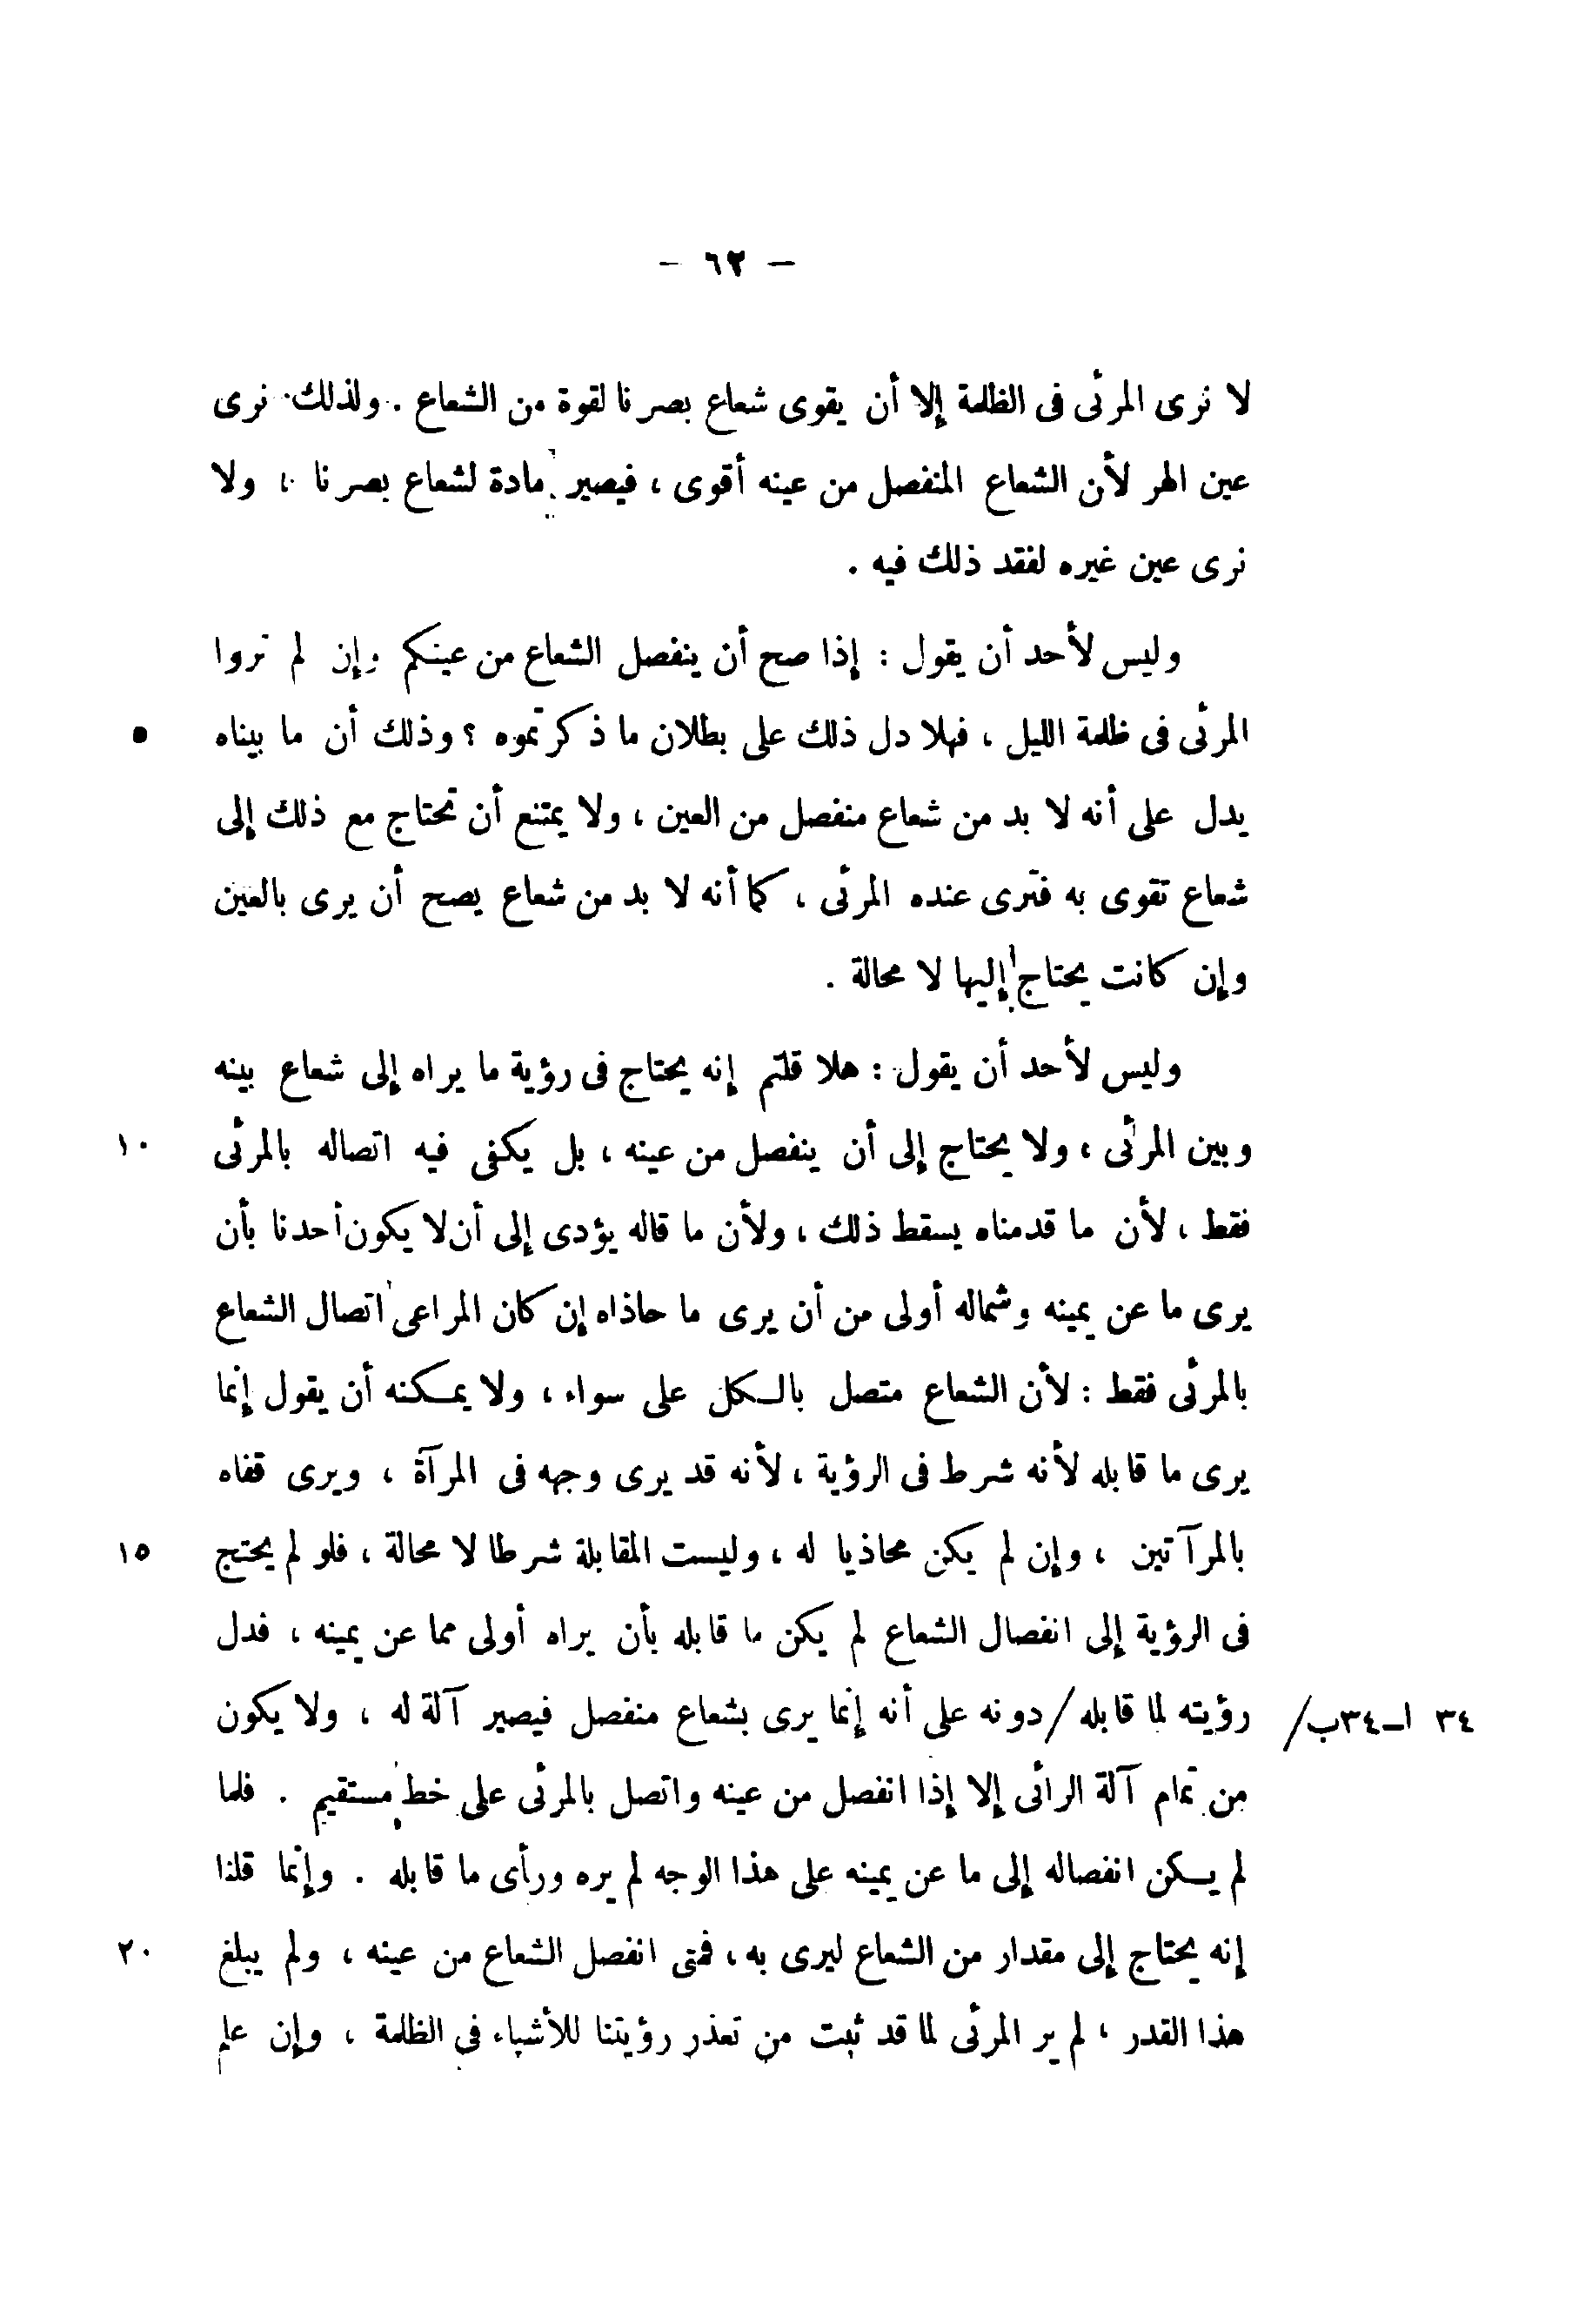 — ٦٢ —
لا نرى المرئى فى الظلمة إلا أن يقوى شعاع بصرنا لقوة من الشعاع . ولذلك نرى
عين الهر لأن الشعاع المنفصل من عينه أقوى ، فيصير مادة لشعاع بصرنا ، ولا
نرى عين غيره لفقد ذلك فيه .
وليس لأحد أن يقول : إذا صح أن ينفصل الشعاع من عينكم وإن لم تروا
المرئى فى ظلمة الليل ، فهلا دل ذلك على بطلان ما ذكرتموه ؟ وذلك أن ما بيناه ٥
يدل على أنه لا بد من شعاع منفصل من العين ، ولا يمتنع أن تحتاج مع ذلك إلى
شعاع تقوى به فترى عنده المرئى ، كما أنه لا بد من شعاع يصح أن يرى بالعين
وإن كانت يحتاج إليها لا محالة .
وليس لأحد أن يقول : هلا قلتم إنه يحتاج فى رؤية ما يراه إلى شعاع بينه
وبين المرئى ، ولا يحتاج إلى أن ينفصل من عينه ، بل يكفى فيه اتصاله بالمرئى ١٠
فقط ، لأن ما قدمناه يسقط ذلك ، ولأن ما قاله يؤدى إلى أن لا يكون أحدنا بأن
يرى ما عن يمينه وشماله أولى من أن يرى ما حاذاه إن كان المراعى اتصال الشعاع
بالمرئى فقط : لأن الشعاع متصل بالكل على سواء ، ولا يمكنه أن يقول إنما
يرى ما قابله لأنه شرط فى الرؤية ، لأنه قد يرى وجهه فى المرآة ، ويرى قفاه
بالمرآتين ، وإن لم يكن محاذيا له ، وليست المقابلة شرطا لا محالة ، فلو لم يحتج ١٥
فى الرؤية إلى انفصال الشعاع لم يكن ما قابله بأن يراه أولى مما عن يمينه ، فدل
٣٤ ا – ٣٤ب/ رؤيته لما قابله/دونه على أنه إنما يرى بشعاع منفصل فيصير آلة له ، ولا يكون
من تمام آلة الرائى إلا إذا انفصل من عينه واتصل بالمرئى على خط مستقيم . فلما
لم يكن انفصاله إلى ما عن يمينه على هذا الوجه لم يره ورأى ما قابله . وإنما قلنا
إنه يحتاج إلى مقدار من الشعاع ليرى به ، فمتى انفصل الشعاع من عينه ، ولم يبلغ ٢٠
هذا القدر ، لم ير المرئى لما قد ثبت من تعذر رؤيتنا للأشياء فى الظلمة ، وإن علم